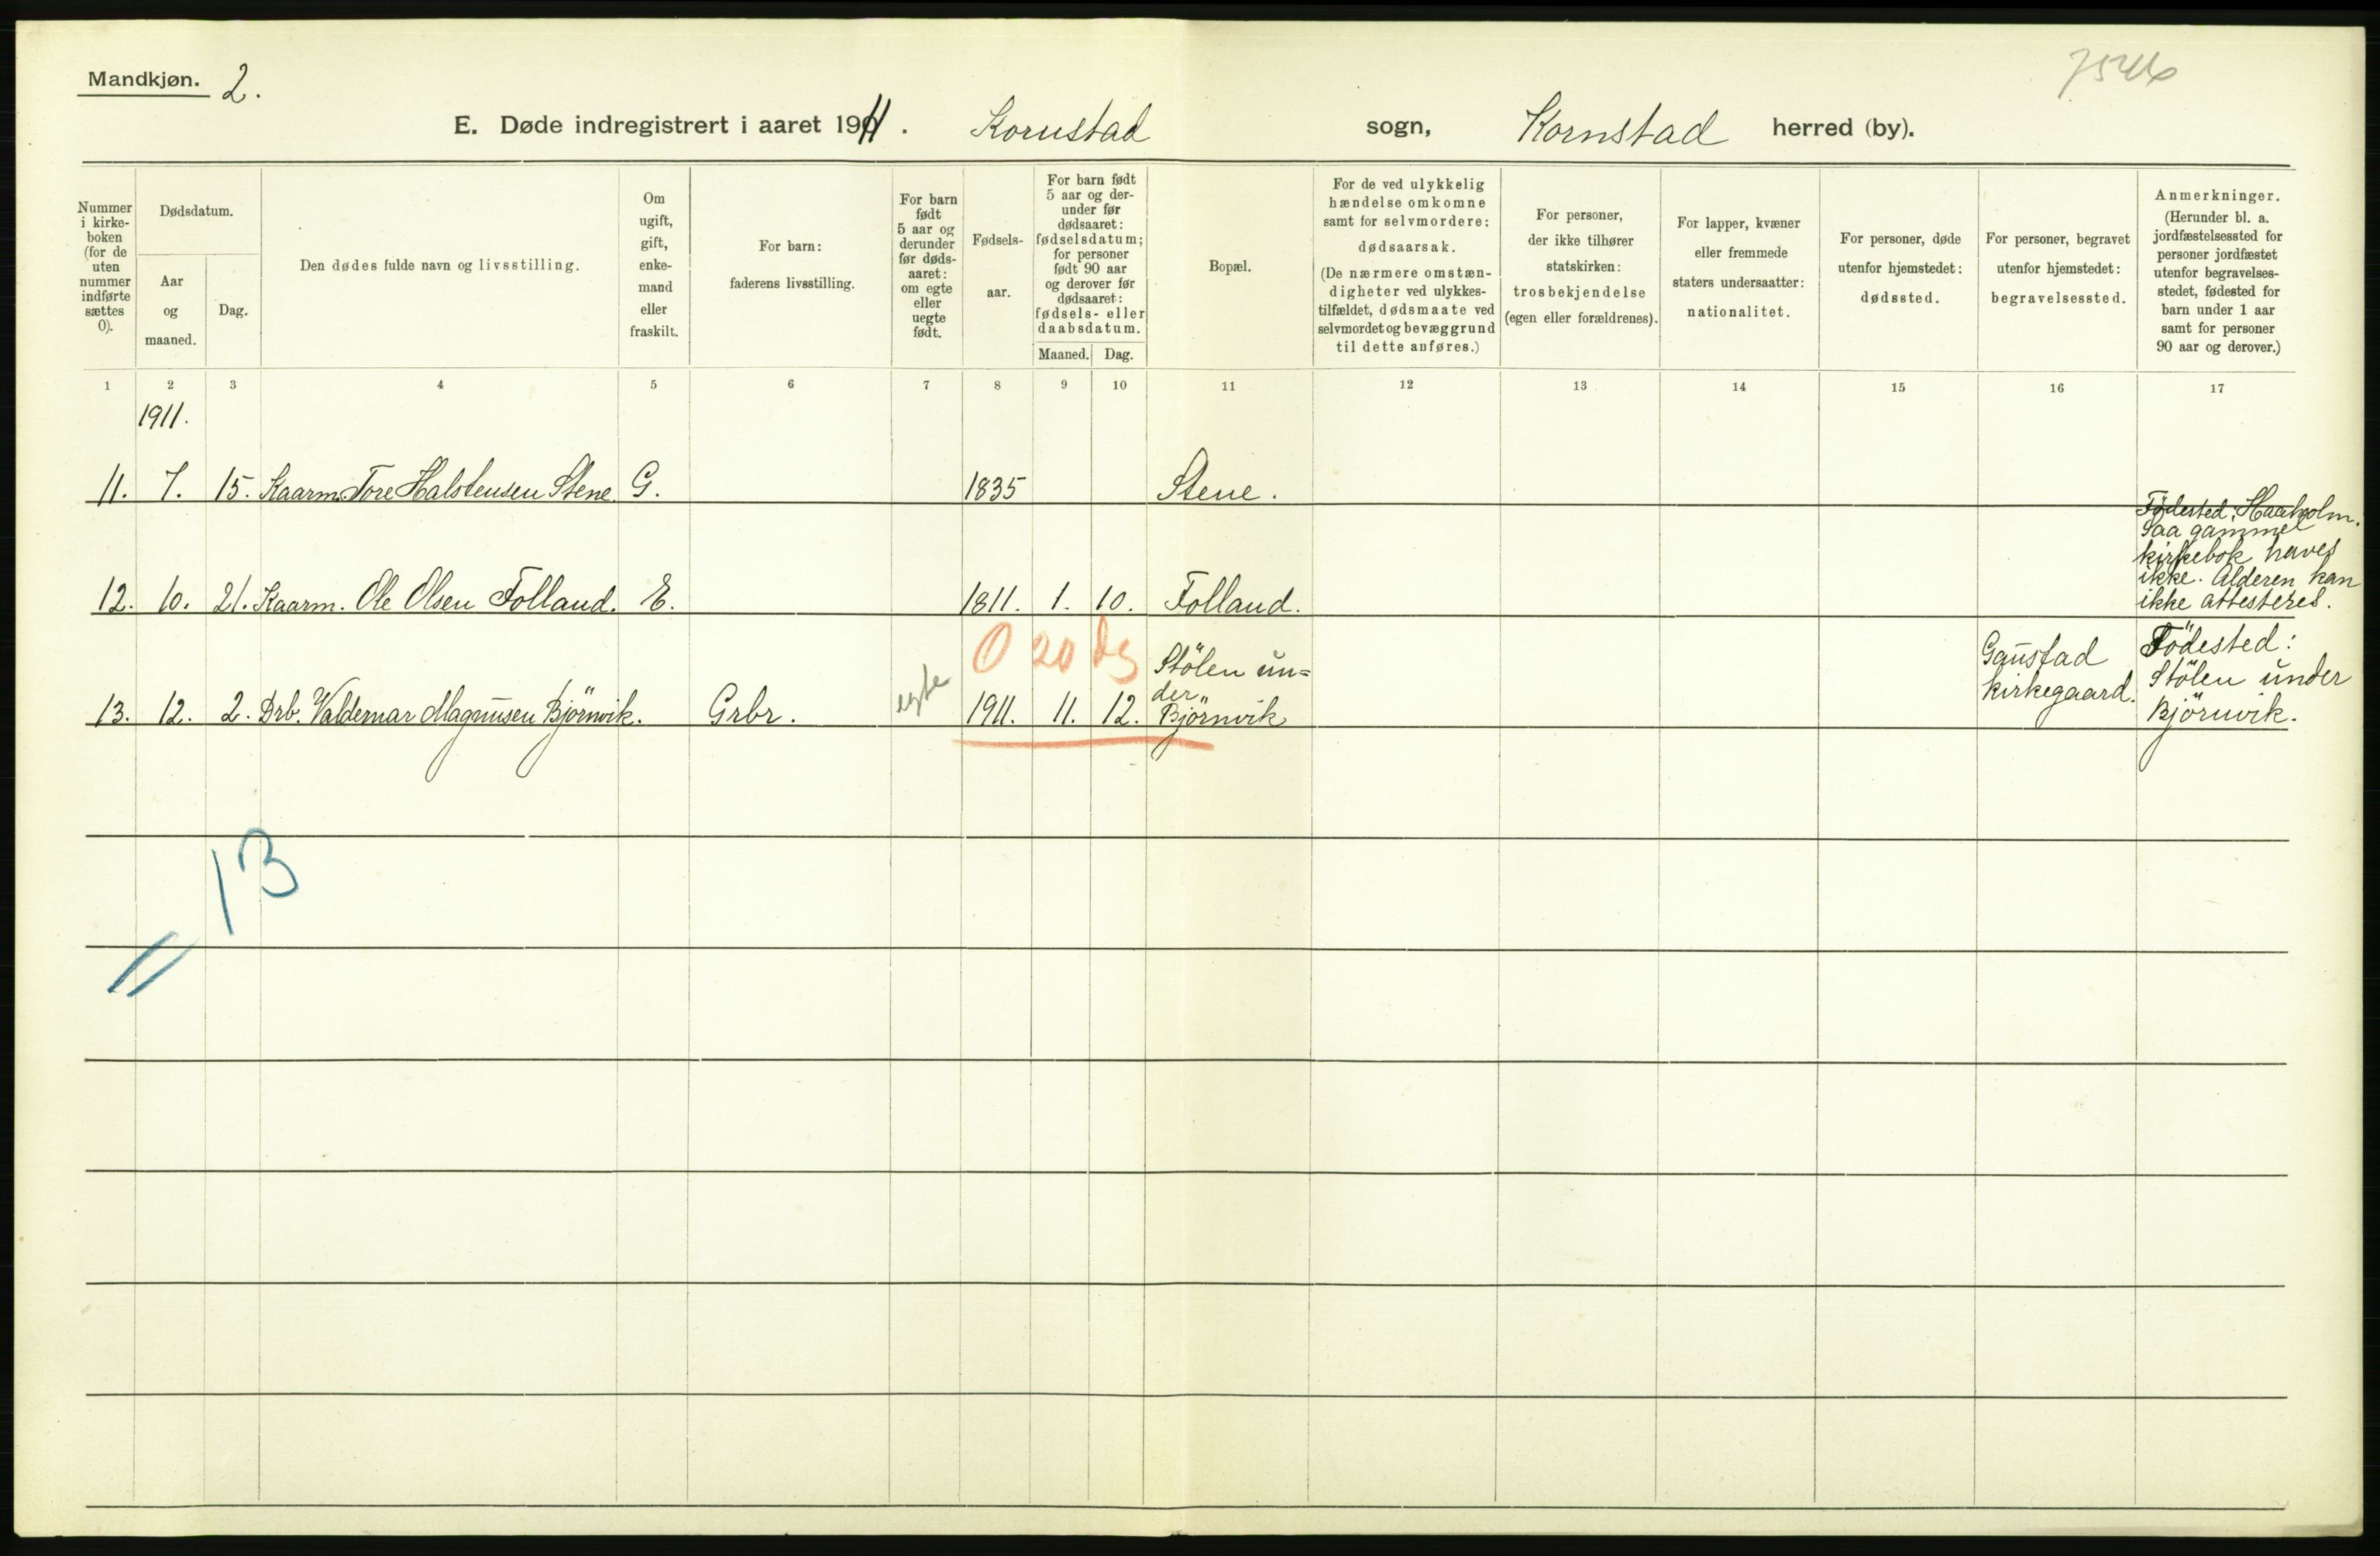 Mandkjøn. 2.
7546
E. Døde indregistrert i aaret 1911. Kornstad sogn, Kornstad herred (by).
Nummer i kirke- boken (for de uten nummer indførte sættes 0).
Dødsdatum.
Aar og maaned.
Dag.
Den dødes fulde navn og livsstilling.
Om ugift, gift, enke- mand eller fraskilt.
For barn: faderens livsstilling.
For barn født 5 aar og derunder før døds- aaret: om egte eller uegte født.
Fødsels- aar.
For barn født 5 aar og der- under før dødsaaret: fødselsdatum; for personer født 90 aar og derover før dødsaaret: fødsels- eller daabsdatum.
Maaned. Dag.
Bopæl.
For de ved ulykkelig hændelse omkomne samt for selvmordere: dødsaarsak. (De nærmere omstæn- digheter ved ulykkes- tilfældet, dødsmaate ved selvmordet og bevæggrund til dette anføres.)
For personer, der ikke tilhører statskirken: trosbekjendelse (egen eller forældrenes).
For lapper, kvæner eller fremmede staters undersaatter: nationalitet.
For personer, døde utenfor hjemstedet: dødssted.
For personer, begravet utenfor hjemstedet: begravelsessted.
Anmerkninger. (Herunder bl. a. jordfæstelsessted for personer jordfæstet utenfor begravelses- stedet, fødested for barn under 1 aar samt for personer 90 aar og derover.)
1 2 3 4 5 6 7 8 9 10 11 12 13 14 15 16 17
1911.
11. 7. 15. Kaarm. Tore Halstensen Stene. G. 1835 Stene.
Födested: Haaholm.
Saa gammel
kirkebok haves
ikke. Alderen kan
12. 10. 21. Kaarm. Ole Olsen Folland. E. 1811. 1. 10. Folland. ikke attesteres.
0 20 dg
Stölen un=
der
13. 12. 2. Drb. Valdemar Magnusen Björnvik. Grbr. egte 1911. 11. 12. Björnvik
Gaustad
kirkegaard.
Födested:
Stölen under
Björnvik.
13